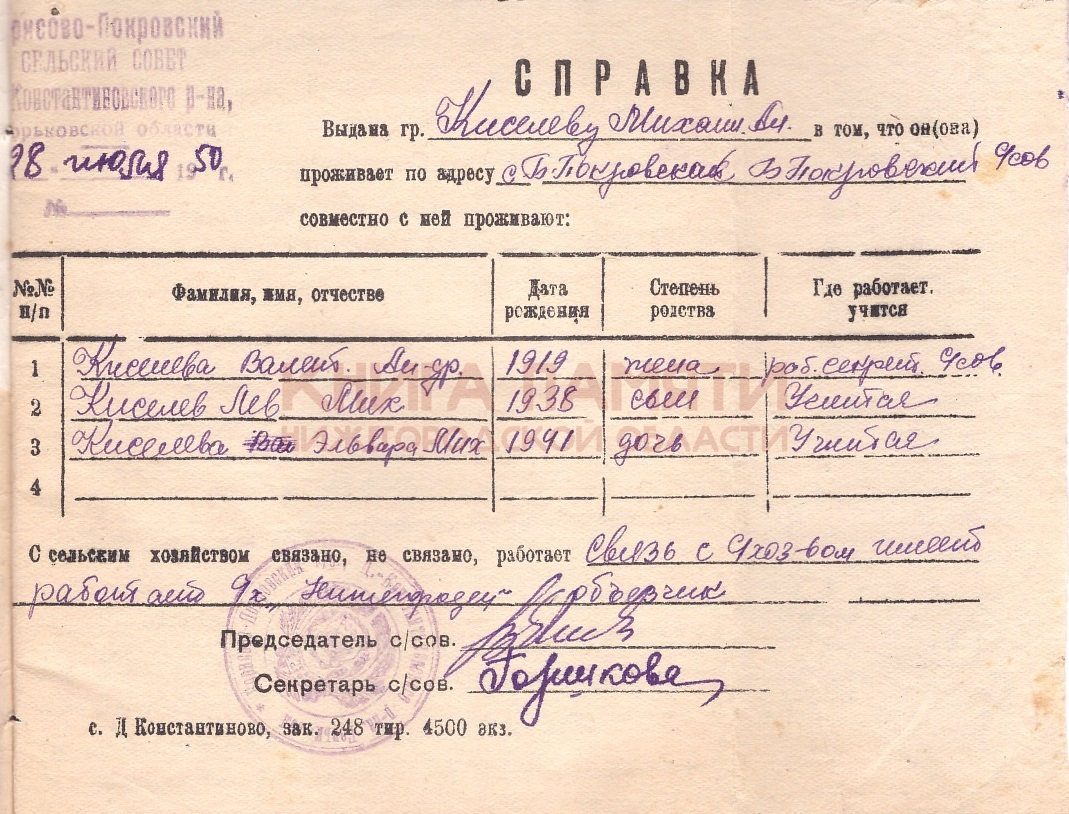 рисово-Покровский
СЕЛЬСКИЙ СОВЕТ
Константиновского р-на,
орьковской области
28 июля 1950 г.
№
СПРАВКА
Выдана гр. Киселеву Михаил. Ан. в том, что он(она)
проживает по адресу с Б Покровская Б Покровский
совместно с ней проживают:
№№ п/п Фамилия, имя, отчестве Дата рождения Степень родства Где работает. учится
1 Киселева Валент. Ан-др. 1919 жена раб. секрет.
2 Киселев Лев Мих 1938 сын Учится
3 Киселева Эльвара Мих 1941 дочь Учится
4
КНИГА ПАМЯТИ
НИЖЕГОРОДСКОЙ ОБЛАСТИ
С сельским хозяйством связано, не связано, работает Связь с имеет
работает "Нижегородец" объездчик
Председатель с/сов.
Секретарь с/сов. Горшкова
с. Д Константиново, зак. 248 тир. 4500 экз.